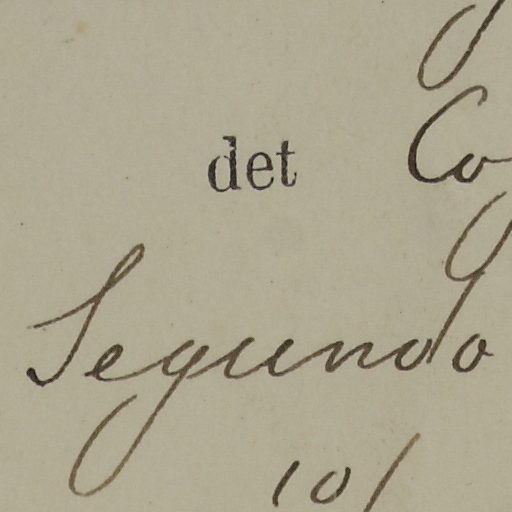 det Co
Segundo
10/